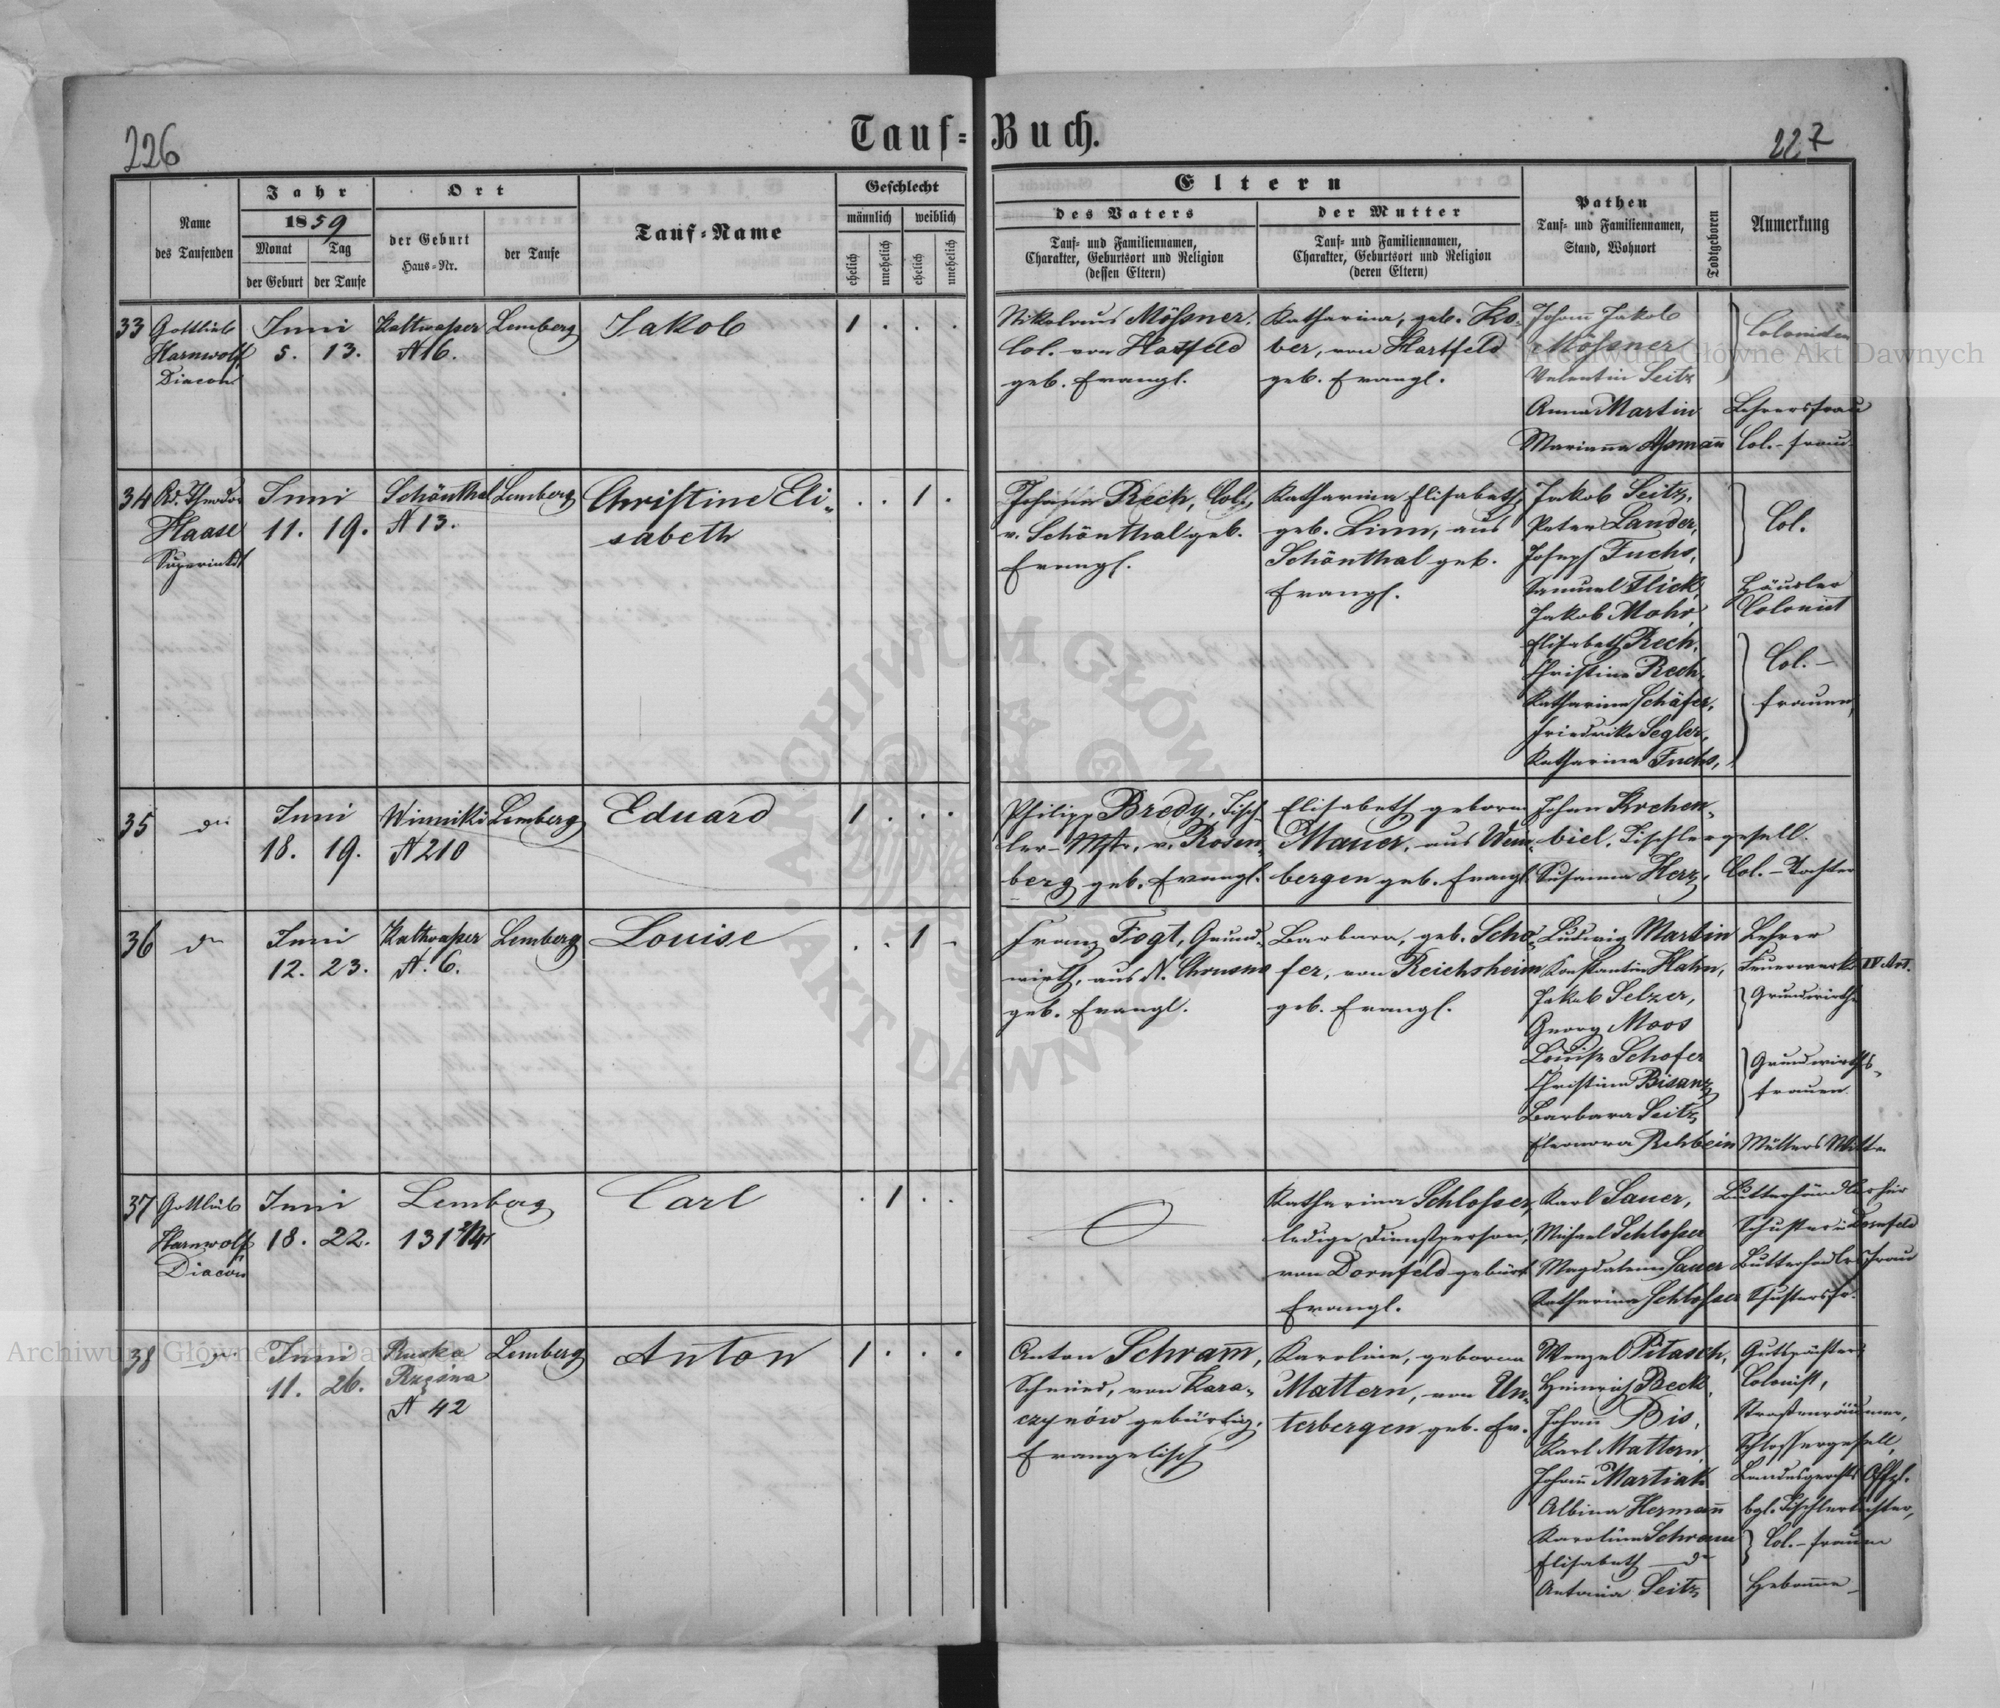 226
Tauf-Buch.
227
Name
des Taufenden
Jahr
1859
Monat
der Geburt
Tag
der Taufe
Ort
der Geburt
Haus-Nr.
der Taufe
Tauf-Name
Geschlecht
männlich
weiblich
ehelich
unehelich
ehelich
unehelich
Eltern
des Vaters
Tauf- und Familiennamen,
Charakter, Geburtsort und Religion
(dessen Eltern)
der Mutter
Tauf- und Familiennamen,
Charakter, Geburtsort und Religion
(deren Eltern)
Pathen
Tauf- und Familiennamen,
Stand, Wohnort
Todtgeboren
Anmerkung
33
Gottlieb
Harnwolf
Diacon
Juni
5. 13.
Kaltwasser
N 16.
Lemberg
Jakob
1 . . .
Nikolaus Mössner,
Col. von Hartfeld
geb. Evangl.
Katharina, geb. Ko-
ber, von Hartfeld
geb. Evangl.
Johann Jakob
Mössner
Valentin Seitz
Anna Martin
Marianna Assmann
Colonisten
Lehrersfrau
Col.-frau
34
Rd. Theodor
Haase
Superintdt
Juni
11. 19.
Schönthal
N 13.
Lemberg
Christine Eli-
sabeth
. . 1 .
Johann Rech, Col.,
v. Schönthal geb.
Evangl.
Katharina Elisabeth
geb. Linn, aus
Schönthal geb.
Evangl.
Jakob Seitz,
Peter Lander,
Joseph Fuchs,
Samuel Flick,
Jakob Mohr,
Elisabeth Rech,
Christine Rech,
Katharina Schäfer,
Friedrike Segler,
Katharina Fuchs,
Col.
Häusler
Colonist
Col.-
frauen
35
do
Juni
18. 19.
Winniki
N 210
Lemberg
Eduard
1 . . .
Philipp Bredy, Tisch-
ler-Mstr. v. Rosen-
berg geb. Evangl.
Elisabeth geborne
Mauer, aus Wein-
bergen geb. Evangl.
Johan Kochen-
biel, Tischlergesell.
Susanna Herz, Col.-Tochter
36
do
Juni
12. 23.
Kaltwasser
N. 6.
Lemberg
Louise
. . 1 .
Franz Fogt, Grund-
wirth, aus N. Chrusno
geb. Evangl.
Barbara, geb. Scho-
fer, von Reichsheim
geb. Evangl.
Ludwig Martin
Konstantin Hahn,
Jakob Selzer,
Georg Moos
Louise Schofer
Christina Bisanz
Barbara Seitz
Eleonora Rehbein
Lehrer
Feuerwerk. IV Art.
Grundwirthe
Grundwirths-
frauen
37
Gottlieb
Harnwolf
Diacon
Juni
18. 22.
Lemberg
131 2/4
Carl
. 1 . .
Katharina Schlosser,
ledige Dienstperson,
von Dornfeld gebürt.
Evangl.
Karl Sauer,
Michael Schlosser
Magdalena Sauer
Katharina Schlosser
Butterhändler hier
Schuster in Dornfeld
Butterhändlersfrau
Schustersfr.
38
do
Juni
11. 26.
Ruska
Rzęsna
N 42
Lemberg
Anton
1 . . .
Anton Schram̄,
Schmied, von Kara-
czynów gebürtig.
Evangelisch
Karoline, geborne
Mattern, von Un-
terbergen geb. Ev.
Wenzel Pitasch,
Heinrich Beck,
Johann Bis,
Karl Mattern,
Johann Martiak
Albina Hermann
Karoline Schram
Elisabeth - do
Antonia Seitz
Gutspächter,
Colonist,
Strassenräumer,
Schlossergesell,
Landesgerichts Offzl.
bgl. Tischlertochter,
Col.-frauen
Hebamme
ARCHIWUM GŁÓWNE AKT DAWNYCH
Archiwum Główne Akt Dawnych
Archiwum Główne Akt Dawnych